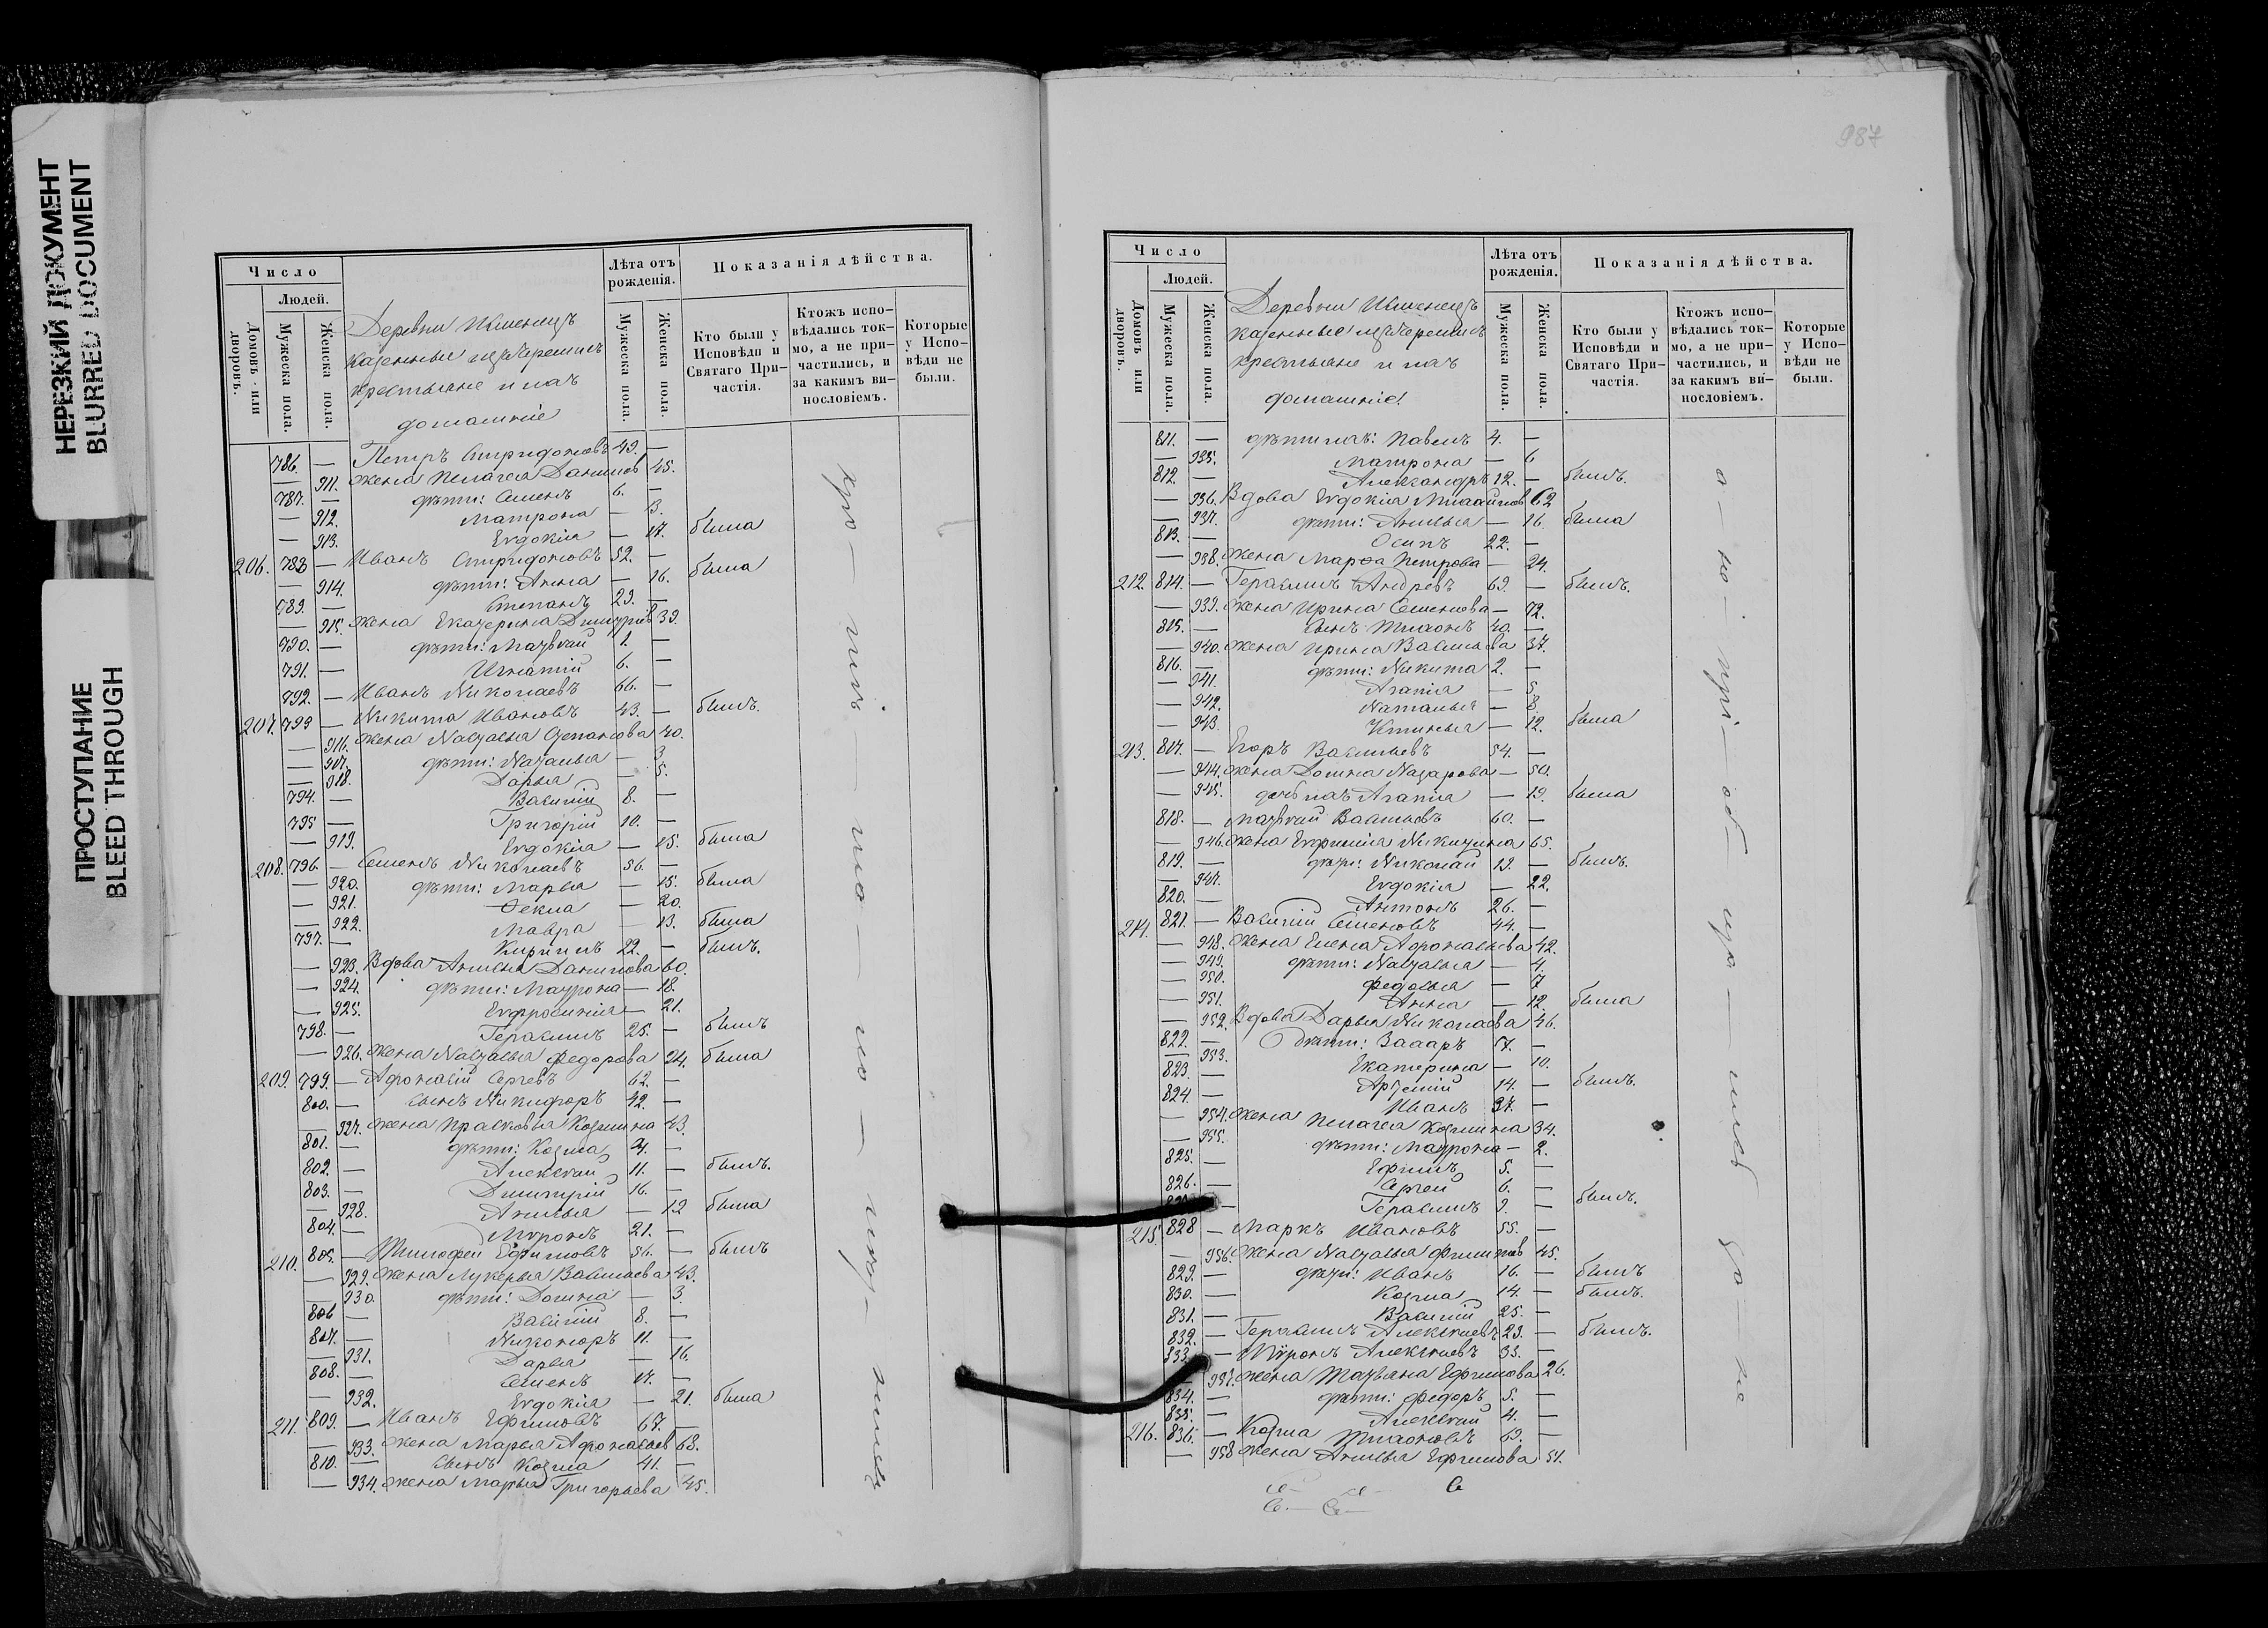 НЕРЕЗКИЙ ДОКУМЕНТ
BLURRED DOCUMENT
ПРОСТУПАНИЕ
BLEED THROUGH
Число
Людей.
Домовъ или дворовъ.
Мужеска пола.
Женска пола.
Деревни
казенные изъ черемисъ
крестьяне и ихъ
домашніе
Лѣта отъ рожденія.
Мужеска пола.
Женска пола.
Показанія дѣйства.
Кто были у Исповѣди и Святаго При-
частія.
Ктожъ испо-
вѣдались ток-
мо, а не при-
частились, и
за какимъ ви-
нословіемъ.
Которые
у Испо-
вѣди не
были.
786. — Петръ Спиридоновъ 49. —
— 911. жена Пелагея Данилов 45.
787. — дѣти: Семенъ 6. —
— 912. Матрона — 3.
— 913. Евдокія — 17. была
206. 788 — Иванъ Спиридоновъ 52. —
— 914. дѣти: Анна — 16. была
789. — Степанъ 29. —
— 915. жена Екатерина Дмитріев 39.
790. — дѣти: Матвей 1. —
791. — Игнатій 6. —
792. — Иванъ Николаевъ 66. —
207. 793 — Никита Ивановъ 43. — былъ.
— 916. жена Наталья Степанова 40.
— 917. дѣти: Наталья — 3
— 918. Дарья — 5.
794. — Василій 8. —
795 — Григорій 10. —
— 919. Евдокія — 15. была
208. 796. — Семенъ Николаевъ 56. —
— 920. дѣти: Марья — 15. была
— 921. Фекла — 20.
— 922. Мавра — 13. была
797. — Кирилъ 22. — былъ.
— 923. Вдова Анисья Данилова 60.
— 924. дѣти: Матрона — 18.
— 925. Евфросинія — 21.
798. — Герасимъ 25. — былъ
— 926. жена Наталья Федорова 24. была
209. 799. — Афонасій Сергевъ 62. —
800. — сынъ Никифоръ 42. —
— 927. жена Прасковья Козмина 43.
801. — дѣти: Козма 4. —
802. — Алексей 11. — былъ.
803. — Димитрій 16. —
— 928. Анисья — 12 была
804. — Миронъ 21. —
210. 805. — Тимофей Ефимовъ 56. — былъ
— 929. жена Лукерья Васильева 43.
— 930. дѣти: Домна — 3.
806 — Василій 8. —
807. — Никоноръ 11. —
— 931. Дарья — 16.
808. — Семенъ 17. —
— 932. Евдокія — 21. была
211. 809. — Иванъ Ефимовъ 67. —
— 933. жена Марья Афонасьев 68.
810. — сынъ Козма 41. —
— 934. жена Марья Григорьева 45.
987
Число
Людей.
Домовъ или дворовъ.
Мужеска пола.
Женска пола.
Деревни
казенные изъ черемисъ
крестьяне и ихъ
домашніе.
Лѣта отъ рожденія.
Мужеска пола.
Женска пола.
Показанія дѣйства.
Кто были у
Исповѣди и
Святаго При-
частія.
Ктожъ испо-
вѣдались ток-
мо, а не при-
частились, и
за какимъ ви-
нословіемъ.
Которые
у Испо-
вѣди не
были.
811. — дѣти ихъ: Павелъ 4. —
— 935. Матрона — 6
812. — Александръ 12. — былъ.
— 936. Вдова Евдокія 62
— 937. дѣти: Анисья — 16. была
813. — Осипъ 22. —
— 938. жена Марфа Петрова — 24.
212. 814. — Герасимъ Андревъ 69. — былъ.
— 939. жена Ирина Семенова — 72.
815. — сынъ Тихонъ 40. —
— 940. жена Ирина Васильева 37.
816. — дѣти: Никита 2. —
— 941. Агапія — 5.
— 942. Наталья — 8.
— 943. Устинья — 12. была
213. 817. — Егоръ Васильевъ 54. —
— 944. жена Домна Назарова — 50.
— 945. дочь ихъ Агапія — 19. была
818. — Матвей Васильевъ 60. —
— 946. жена Евфимія Никитина 65.
819. — дѣти: Николай 19. — былъ.
— 947. Евдокія — 22.
820. — Антонъ 26. —
214. 821. — Василій Семеновъ 44. —
— 948. жена Елена Афонасьева 42.
— 949. дѣти: Наталья — 4.
— 950. Федосья — 7
— 951. Анна — 12. была
— 952. Вдова Дарья Николаева 46.
822. — дѣти: Захаръ 7. —
— 953. Екатерина — 10.
823. — Артемій 14. — былъ.
824. — Иванъ 37. —
— 954. жена Пелагея Козмина 34.
— 955. дѣти: Матрона — 2.
825. — Ефимъ 5. —
826. — Сергей 6. —
— Герасимъ 9. — былъ.
215. 828 — Маркъ Ивановъ 55. —
— 956. жена Наталья Филипов 45.
829. — дѣти: Иванъ 16. — былъ
830. — Козма 14. — былъ.
831. — Василій 25. —
832. — Герасимъ Алексеевъ 23. — былъ.
833. — Миронъ Алексеевъ 33. —
— 957. жена Татьяна Ефимова 26.
834. — дѣти: Федоръ 5. —
835. — Алексей 4. —
216. 836. — Козма Тихоновъ 69. —
— 958 жена Анисья Ефимова 51.